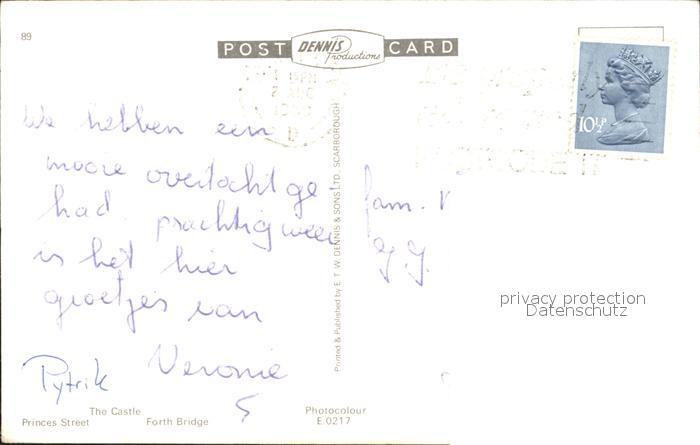 89
POST DENNIS Productions CARD
10½P
We hebben een
mooie overtocht ge
had. prachtig weer
is het hier
groetjes van
Veronie
Pytrik
fam.
Printed & Published by E. T. W. DENNIS & SONS LTD. SCARBOROUGH
privacy protection
Datenschutz
The Castle
Princes Street Forth Bridge
Photocolour
E.0217